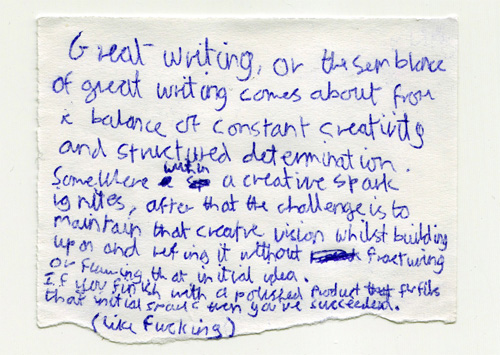 Great writing, or the semblance
of great writing comes about from
a balance of constant creativity
and structured determination.
Somewhere within a creative spark
ignites, after that the challenge is to
maintain that creative vision whilst building
upon and refining it without fracturing
or flaming that initial idea.
If you finish with a polished product that fulfils
that initial spark then you've succeeded.
(like fucking)